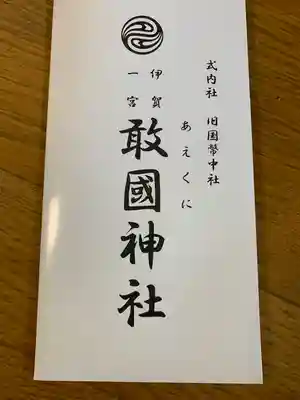 式内社 旧国幣中社
あえくに
伊賀
一宮
敢國神社